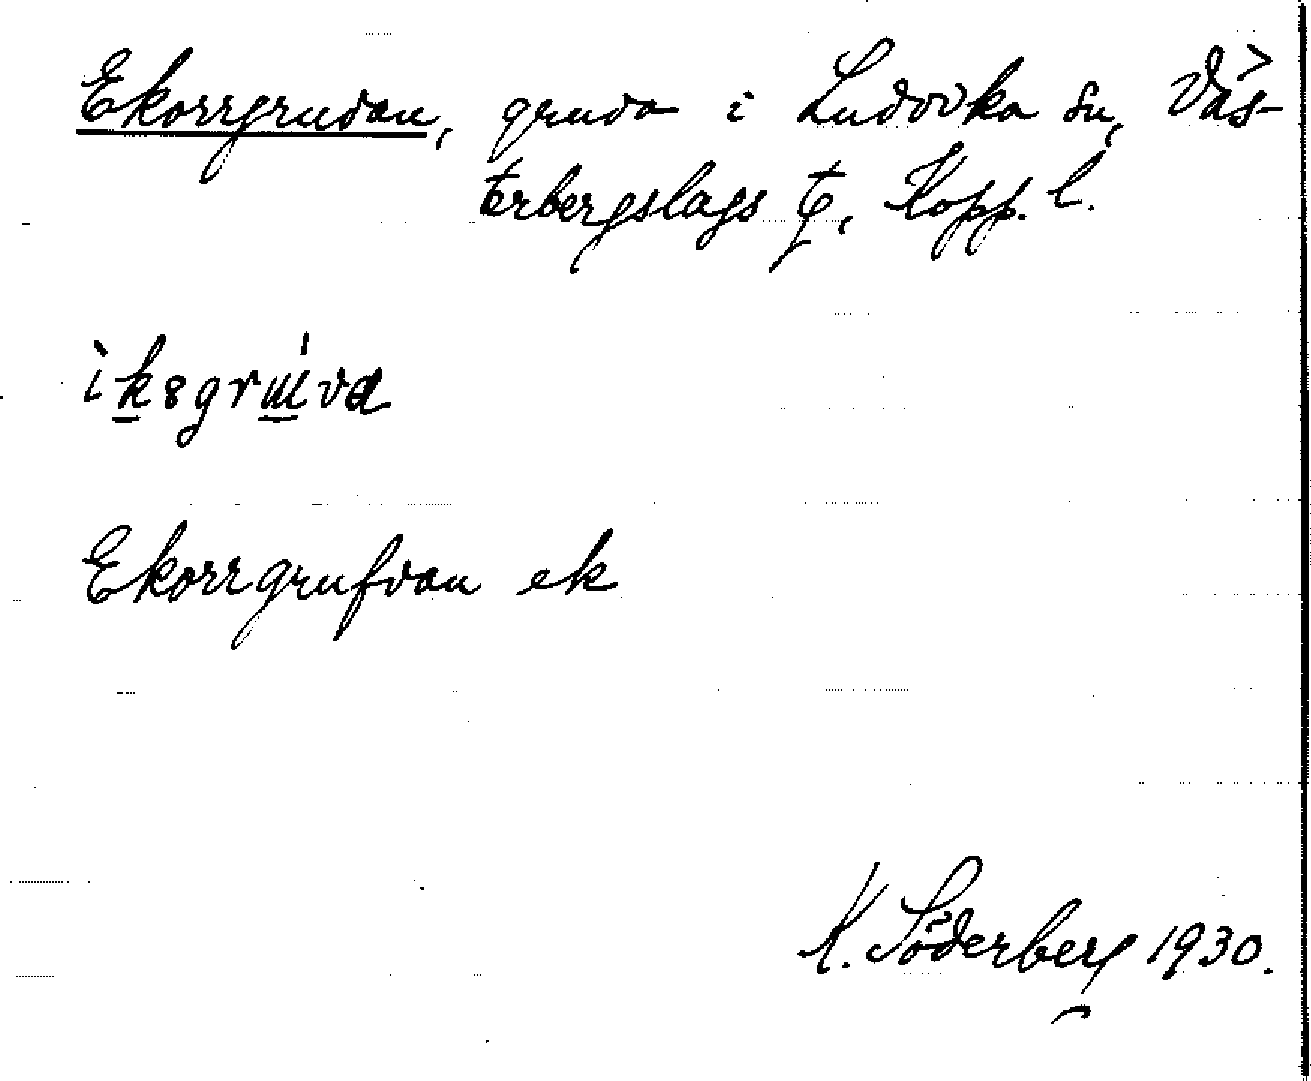 Ekorrgruvan, gruva i Ludvika sn, Väs-
terbergslags tg, Kopp. l.
Ekorrgrufvan ek
K. Söderberg 1930.